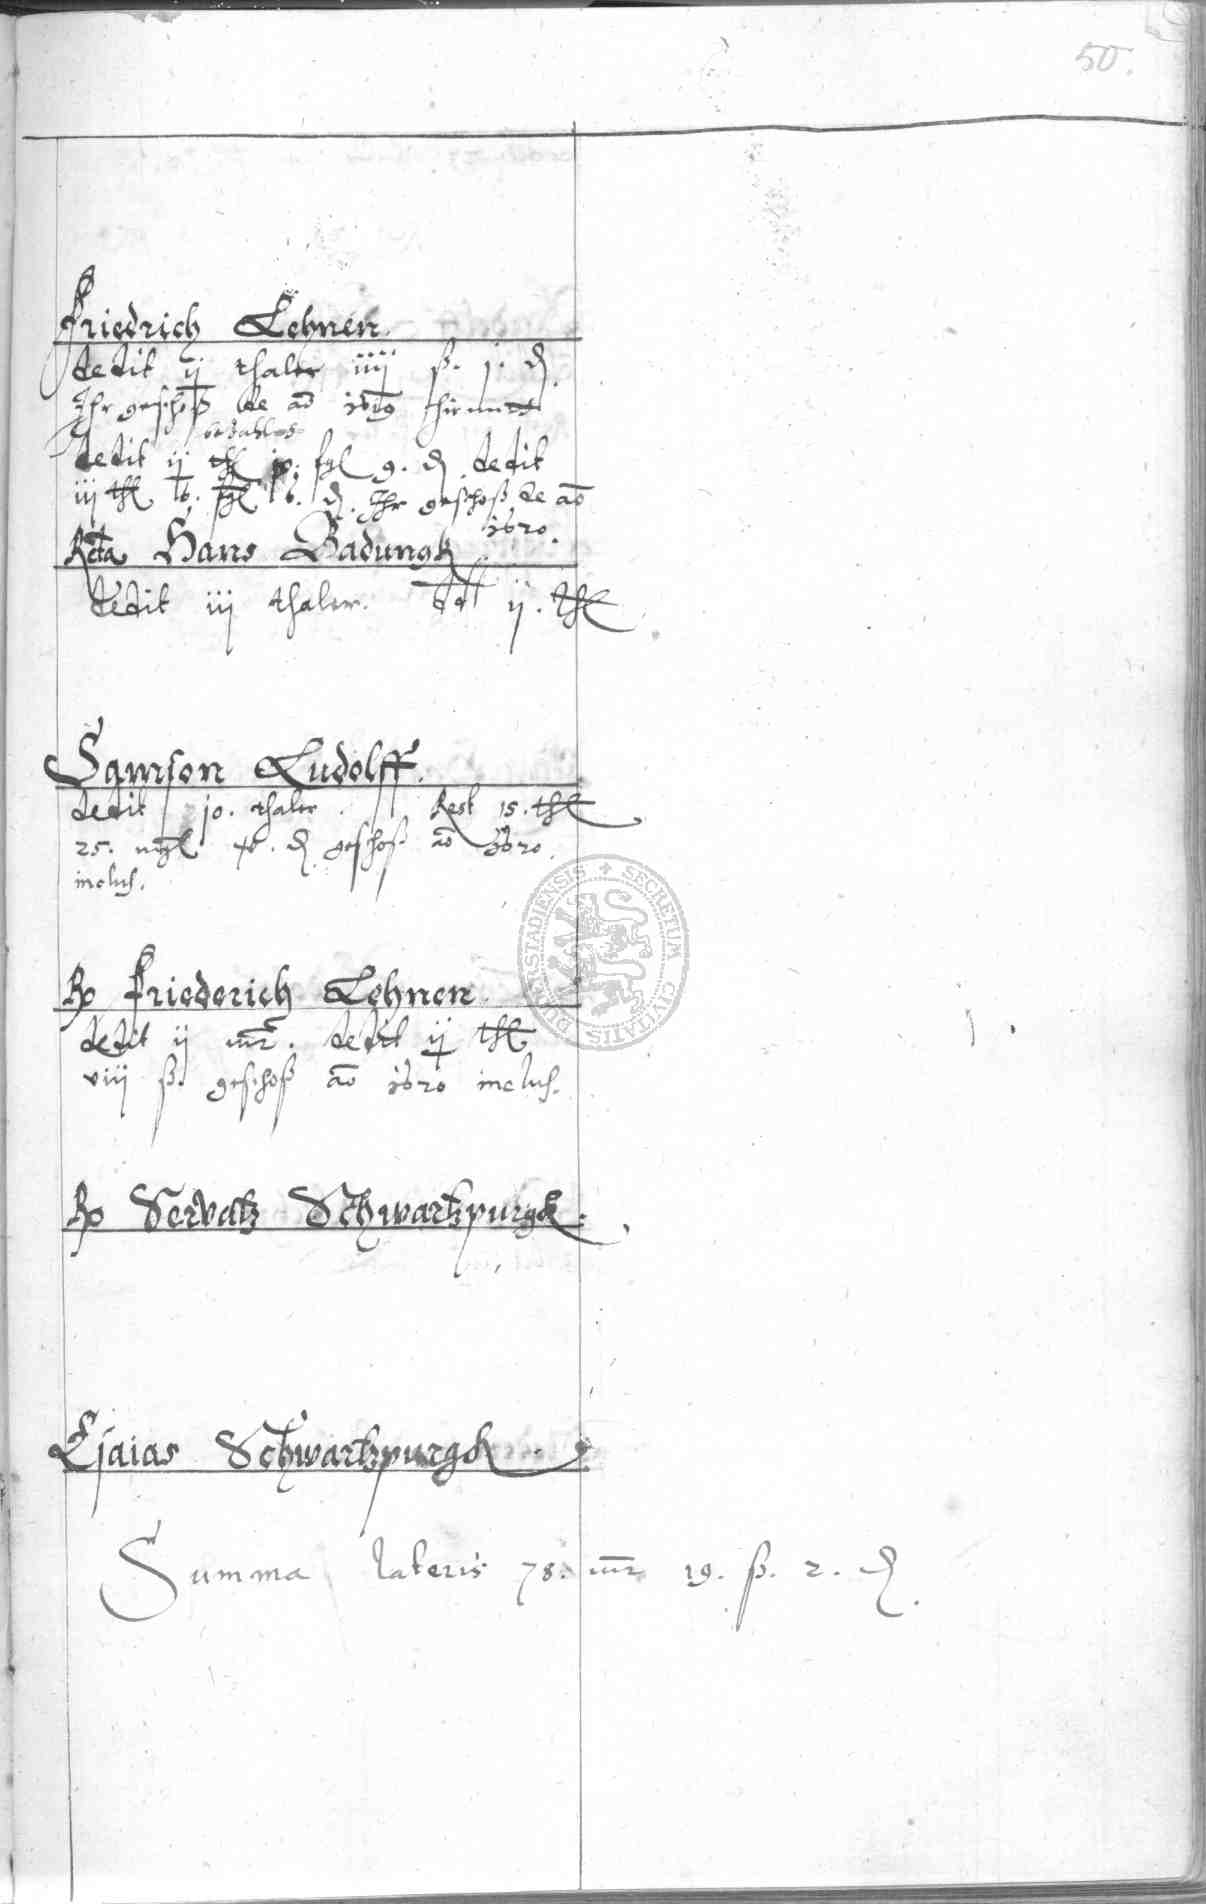 50.
Friedrich Lehnen.
dedit ij thaler iiii ß. j. ₰
Ihr geschoß de ao 1619 hirmitt
bezahlet
dedit ij thl 10. fgl 9. ₰ dedit
iij thl 6. fgl 6. ₰. Ihr geschoß de ao
1620.
Rcta Hans Badungk
dedit iij thaler. ddt ij. thl
Samson Ludolff.
dedit 10. thaler. Rest 15. thl
25. mgl ₰ geschoß ao 1620.
inclus.
Rx Friederich Lehnen
dedit ij mr. dedit ij thl
viii ß. geschoß ao 1620 inclus.
Rx Servatz Schwartzpurgk.
Esaias Schwartzpurgk.
Summa lateris 78. mr 19. ß. 2. ₰.
SECRETUM CIVITATIS DUDERSTADIENSIS